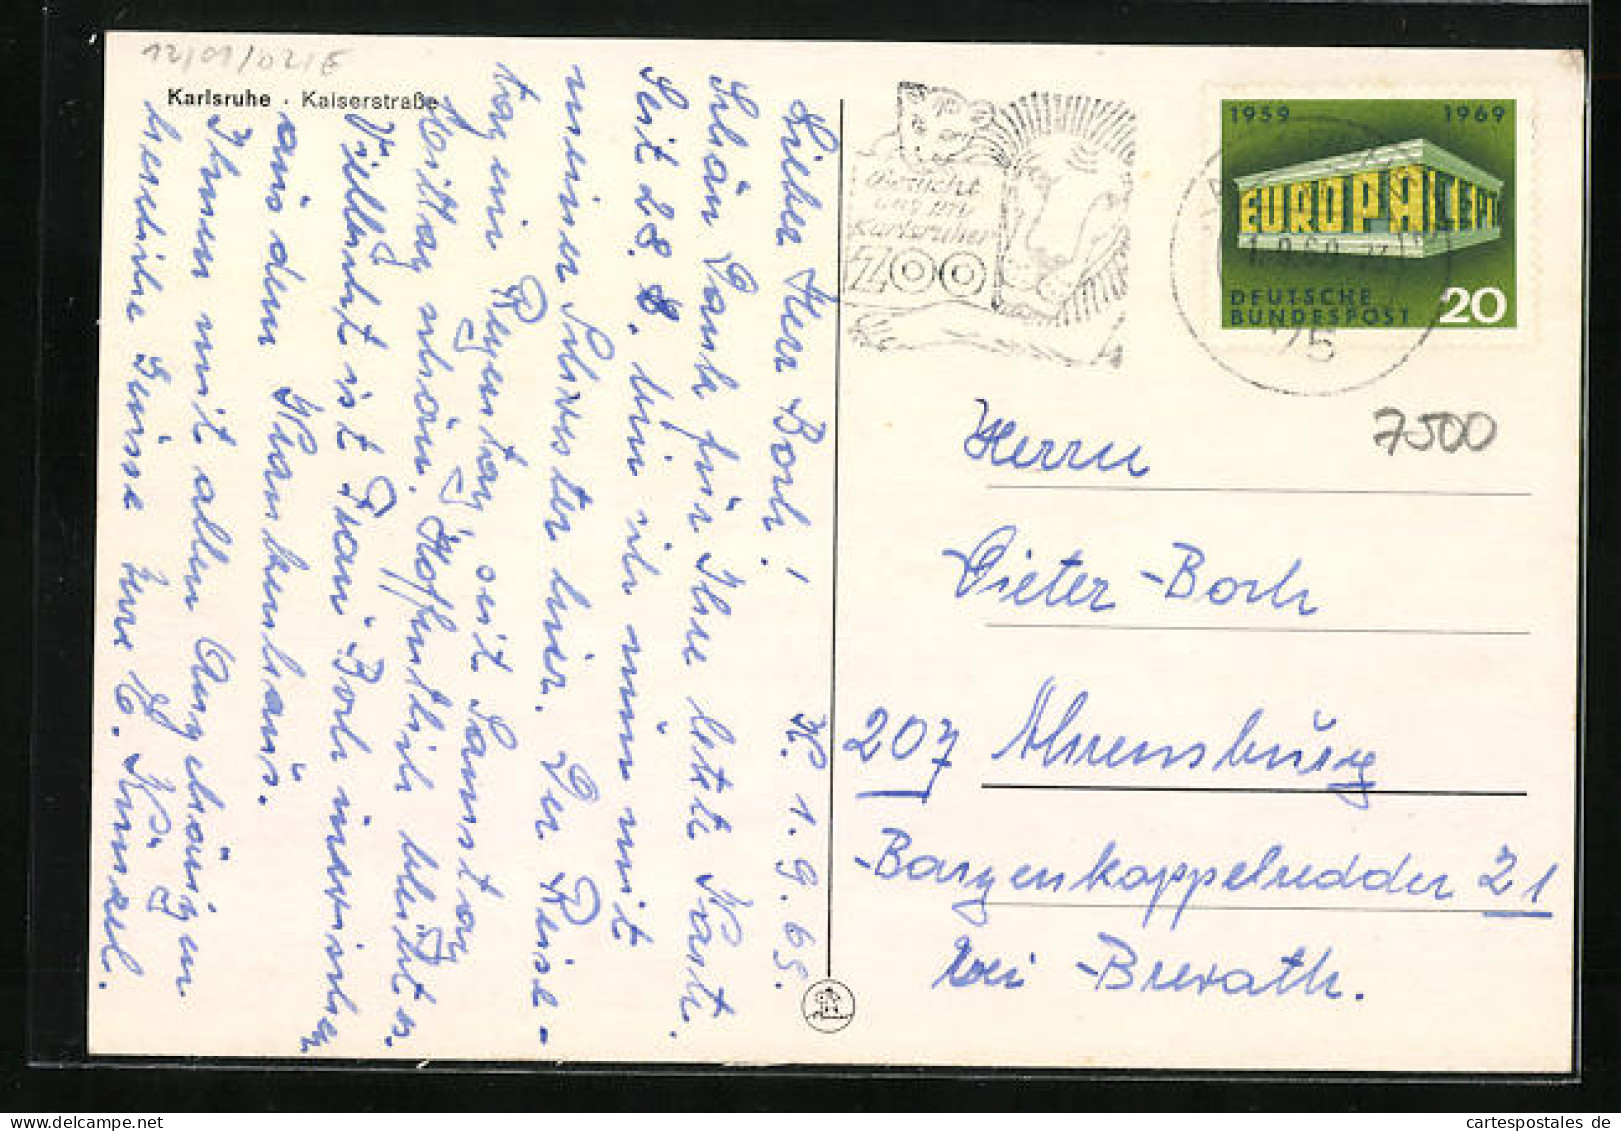 12/01/02/E
Karlsruhe · Kaiserstraße
K. 1.9.69.
Lieber Herr Borh!
Schön Dank für Ihre letzte Karte.
Seit 28. 8. bin ich nun mit
meiner Schwester hier. Der Reise-
tag ein Regentag, seit Samstag
Mittag schön. Hoffentlich bleibt es.
Vielleicht ist Frau Borh inzwischen
aus dem Krankenhaus.
Ihnen mit allen Angehörigen
herzliche Grüsse Ihre Kunkel.
Besucht
uns im
Karlsruher
ZOO
1959 1969
EUROPA CEPT
DEUTSCHE
BUNDESPOST 20
75
7500
Herrn
Dieter Borh
207 Ahrensburg
Bargenkoppelredder 21
bei Brerath.
cartespostales de